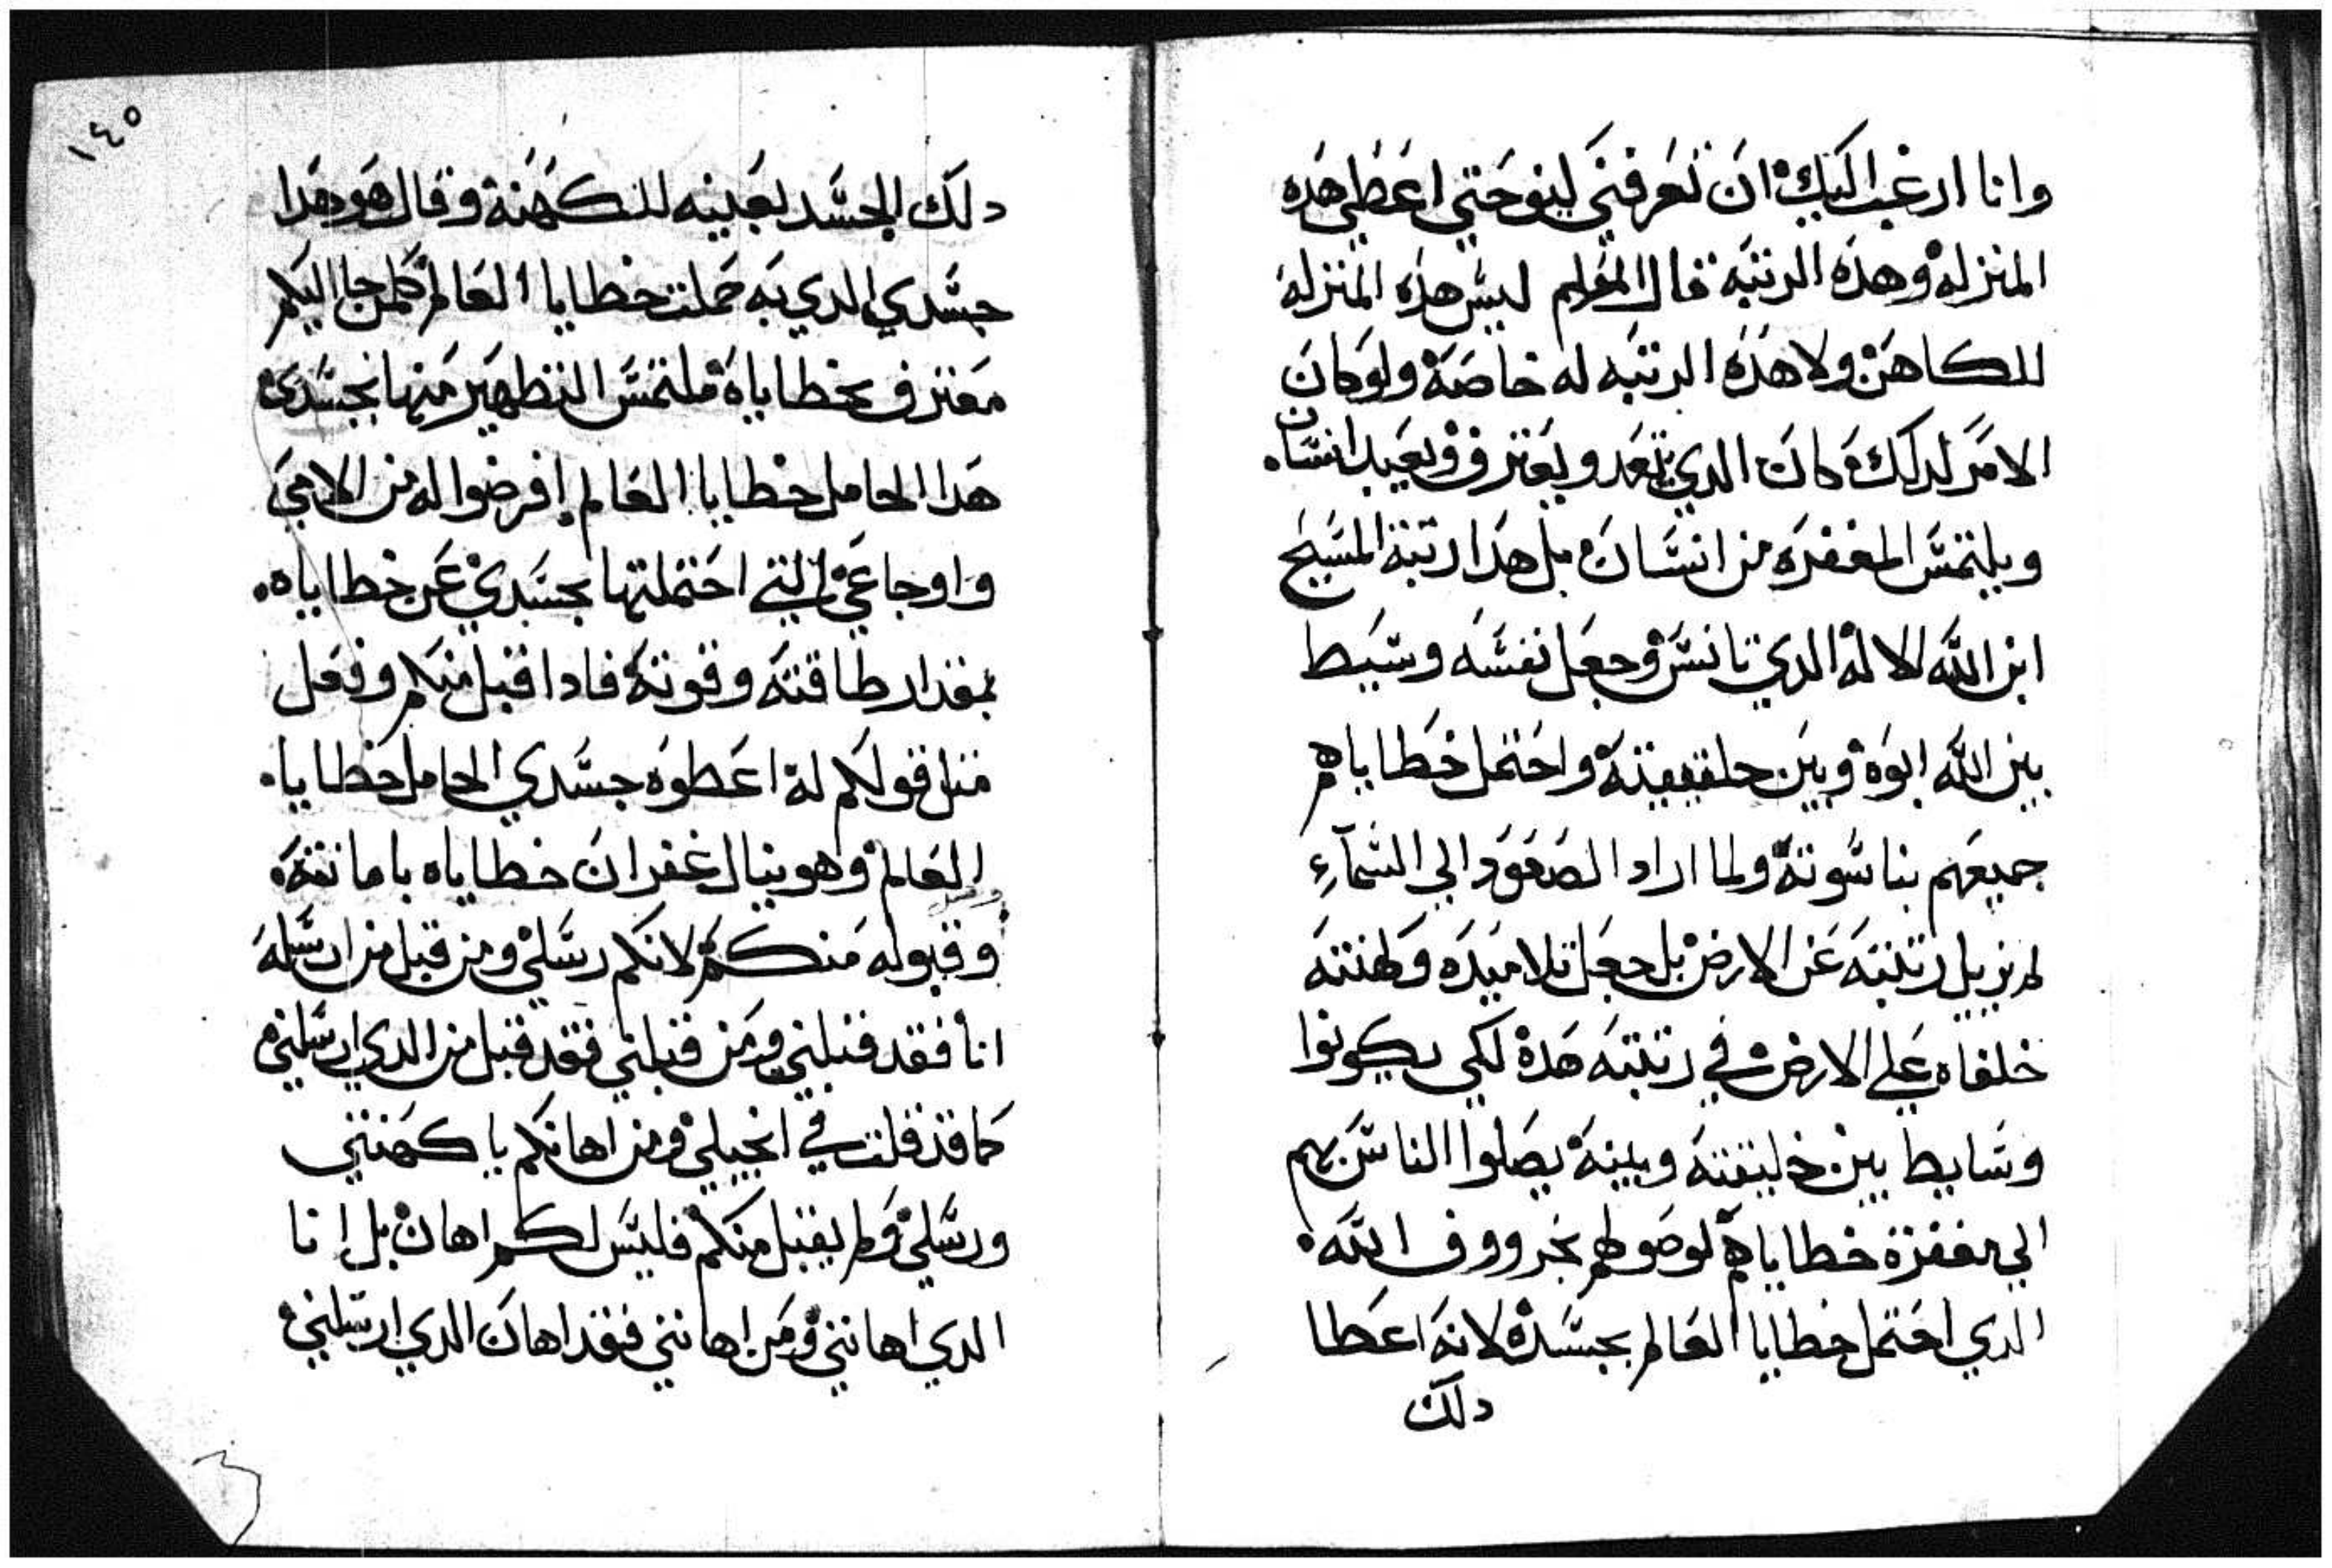 وانا ارغب اليك ان تعرفني لينو حتي اعطي هده
المنزله وهده الرتبه قال المعلم ليس هده المنزله
للكاهن ولا هده الرتبه له خاصه ولو كان
الامر لدلك مكان الدي تعمد ويعترف ويعبد انسان
ويلتمس المغفره من انسان بل هدا رتبة المسيح
ابن الله الاله الدي تانس وجعل نفسه وسيط
بين الله ابوه وبين خليقته واحتمل خطاياهم
جميعهم بناسوته ولما اراد الصعود الي السماء
لم يزيل رتبته عن الارض بل جعل تلاميده وكهنته
خلفاه علي الارض في رتبته هده لكي يكونوا
وسايط بين خليقته وبينه يصلوا الناس بهم
الي مغفرة خطاياهم لوصولهم بخرووف الله
الدي احتمل خطايا العالم بجسده لانه اعطا
دلك
١٤٥
دلك الجسد بعينه للكهنة وقال هودا هدا
جسدي الدي به حملت خطايا العالم كلمن جا اليكم
معترف بخطاياه ملتمس التطهير منها بجسدي
هدا الحامل خطايا العالم افرضوا له من الامي
واوجاعي التي احتملتها بجسدي عن خطاياه
بمقدار طاقته وقوته فادا قبل منكم وفعل
متل قولكم له اعطوه جسدي الحامل خطايا
العالم وهو ينال غفران خطاياه بامانته
وقبوله منكم لانكم رسلي ومن قبل من ارسله
انا فقد قبلني ومن قبلني فقد قبل من الدي ارسلني
كما قد قلت في انجيلي ومن اهانكم يا كهنتي
ورسلي ولم يقبل منكم فليس لكم اهان بل انا
الدي اهانني ومن اهانني فقد اهان الدي ارسلني